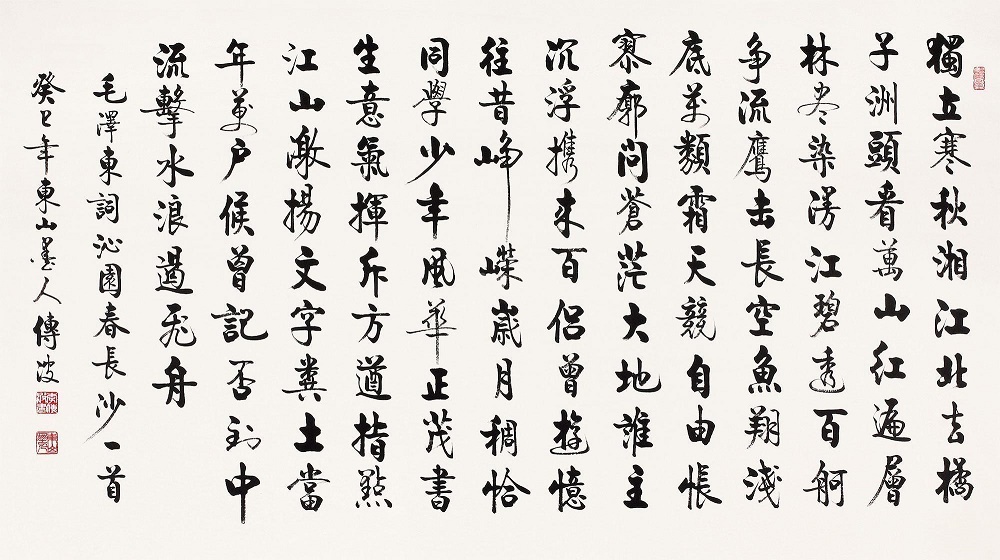 獨立寒秋湘江北去橘
子洲頭看萬山紅遍層
林尽染漫江碧透百舸
争流鹰击長空魚翔淺
底萬類霜天競自由悵
寥廓問蒼茫大地誰主
沉浮携來百侣曾遊憶
往昔崢嶸歲月稠恰
同學少年風華正茂書
生意氣揮斥方遒指點
江山激揚文字糞土當
年萬户候曾記否到中
流擊水浪遏飛舟
毛澤東詞沁園春長沙一首
癸巳年東山墨人傳波